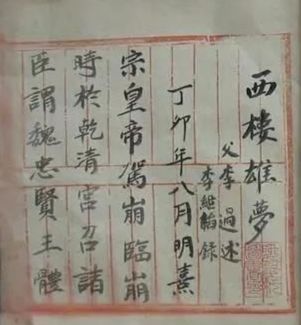 西樓雄夢
父李過述
李繼輪录
丁卯年八月明熹
宗皇帝駕崩臨崩
時於乾清宮召諸
臣謂魏忠賢王體